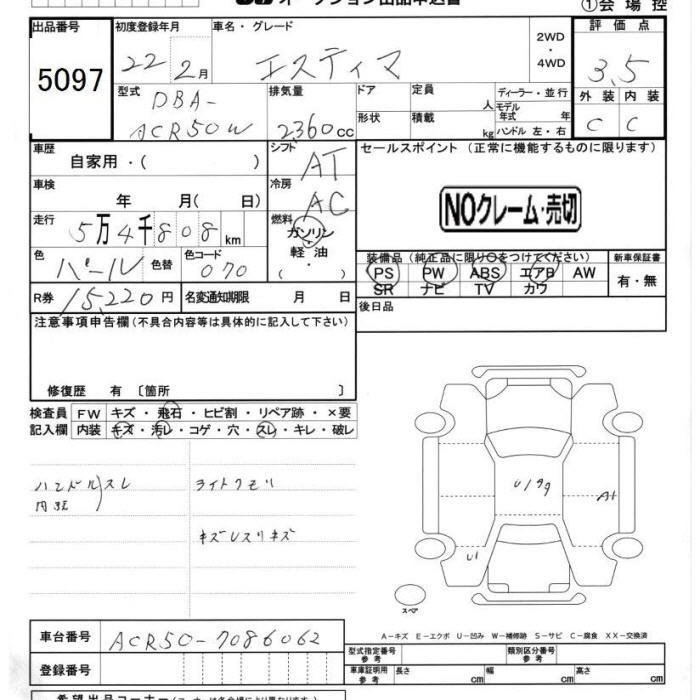 オークション出品申込書
①会場控
出品番号
5097
初度登録年月
22 2月
車名・グレード
エスティマ
2WD
・
4WD
評価点
3.5
型式
DBA-
ACR50W
排気量
2360cc
ドア
定員
人
形状
積載
kg
ディーラー・並行
モデル
年式 年
ハンドル 左・右
外装 内装
C C
車歴
自家用・( )
シフト
AT
セールスポイント (正常に機能するものに限ります)
NOクレーム・売切
車検
年 月( 日)
冷房
AC
走行
5万4千808km
燃料
ガソリン
軽油
( ・ )
色
パール
色替
色コード
070
装備品 (純正品に限り○をつけてください)
PS PW ABS エアB AW
SR ナビ TV カワ
新車保証書
有・無
R券 15,220円
名変通知期限 月 日
後日品
注意事項申告欄 (不具合内容等は具体的に記入して下さい)
修復歴 有 〔箇所 〕
検査員
記入欄
FW キズ・飛石・ヒビ割・リペア跡・×要
内装 キズ・汚レ・コゲ・穴・スレ・キレ・破レ
ハンドルスレ
ライトクモリ
キズレスリキズ
U/99
A1
U1
スペア
A-キズ E-エクボ U-凹み W-補修跡 S-サビ C-腐食 XX-交換済
車台番号
ACR50-7086062
型式指定番号
参考
類別区分番号
参考
登録番号
車庫証明用
参考
長さ cm
幅 cm
高さ cm
希望出品コーナー